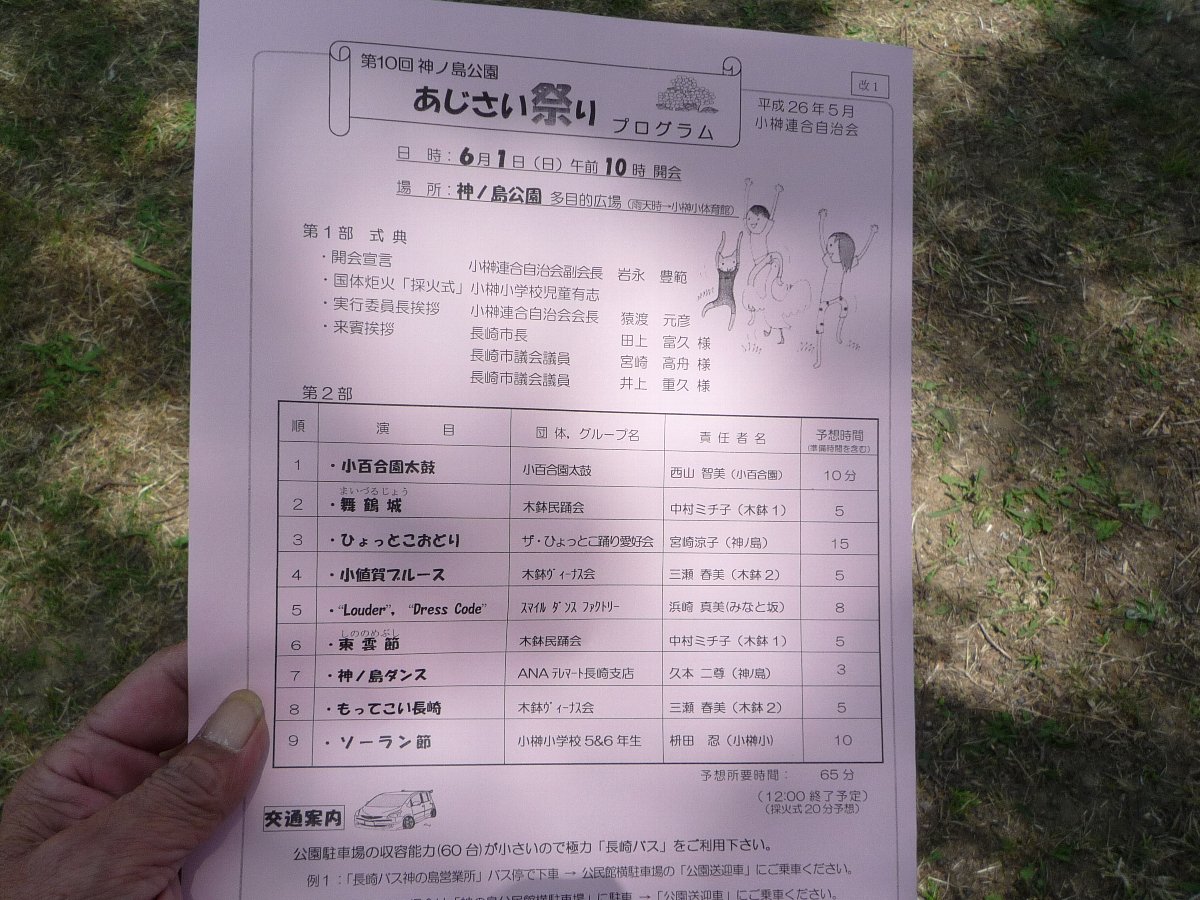 第10回 神ノ島公園
あじさい祭り プログラム
改1
平成26年5月
小榊連合自治会
日 時：6月1日（日）午前10時 開会
場 所：神ノ島公園 多目的広場（雨天時→小榊小体育館）
第1部 式典
・開会宣言 小榊連合自治会副会長 岩永 豊範
・国体炬火「採火式」小榊小学校児童有志
・実行委員長挨拶 小榊連合自治会会長 猿渡 元彦
・来賓挨拶 長崎市長 田上 富久 様
長崎市議会議員 宮崎 高舟 様
長崎市議会議員 井上 重久 様
第2部
順 演 目 団体，グループ名 責任者名 予想時間
（準備時間を含む）
1 ・小百合園太鼓 小百合園太鼓 西山 智美（小百合園） 10分
まいづるじょう
2 ・舞鶴城 木鉢民踊会 中村ミチ子（木鉢1） 5
3 ・ひょっとこおどり ザ・ひょっとこ踊り愛好会 宮崎涼子（神ノ島） 15
4 ・小値賀ブルース 木鉢ヴィーナス会 三瀬 春美（木鉢2） 5
5 ・“Louder”，“Dress Code” スマイル ダンス ファクトリー 浜崎 真美（みなと坂） 8
しののめぶし
6 ・東雲節 木鉢民踊会 中村ミチ子（木鉢1） 5
7 ・神ノ島ダンス ANAテレマート長崎支店 久本 二尊（神ノ島） 3
8 ・もってこい長崎 木鉢ヴィーナス会 三瀬 春美（木鉢2） 5
9 ・ソーラン節 小榊小学校5&6年生 枡田 忍（小榊小） 10
予想所要時間： 65分
（12:00終了予定）
（採火式20分予想）
交通案内
公園駐車場の収容能力(60台)が小さいので極力「長崎バス」をご利用下さい。
例1：「長崎バス神の島営業所」バス停で下車 → 公民館横駐車場の「公園送迎車」にご乗車ください。
「神の島公民館横駐車場」に駐車 → 「公園送迎車」にご乗車ください。